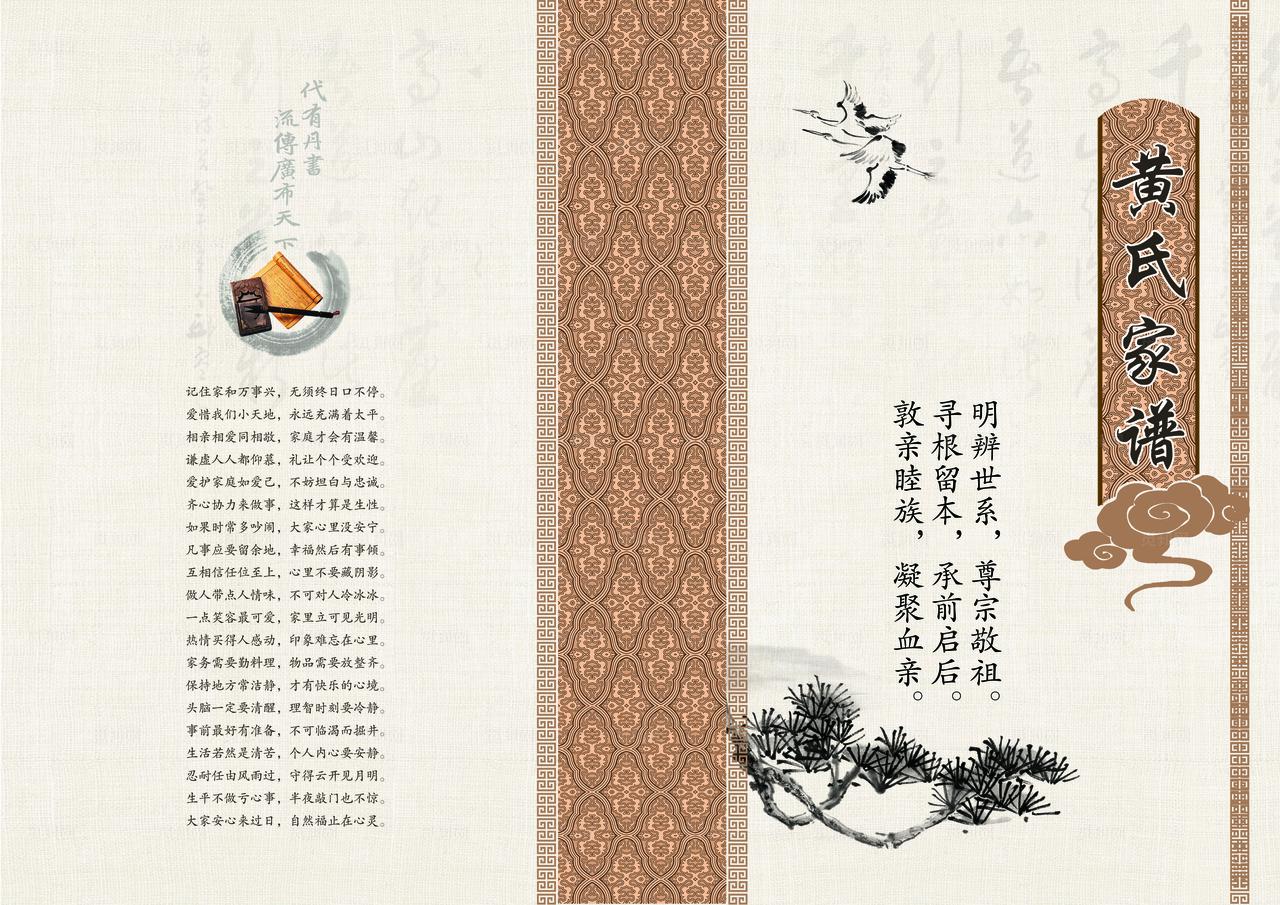 黄氏家谱
明辨世系，尊宗敬祖。
寻根留本，承前启后。
敦亲睦族，凝聚血亲。
代有丹書
流傳廣布天下
记住家和万事兴，无须终日口不停。
爱惜我们小天地，永远充满着太平。
相亲相爱同相敬，家庭才会有温馨。
谦虚人人都仰慕，礼让个个受欢迎。
爱护家庭如爱己，不妨坦白与忠诚。
齐心协力来做事，这样才算是生性。
如果时常多吵闹，大家心里没安宁。
凡事应要留余地，幸福然后有事倾。
互相信任位至上，心里不要藏阴影。
做人带点人情味，不可对人冷冰冰。
一点笑容最可爱，家里立可见光明。
热情买得人感动，印象难忘在心里。
家务需要勤料理，物品需要放整齐。
保持地方常洁静，才有快乐的心境。
头脑一定要清醒，理智时刻要冷静。
事前最好有准备，不可临渴而掘井。
生活若然是清苦，个人内心要安静。
忍耐任由风雨过，守得云开见月明。
生平不做亏心事，半夜敲门也不惊。
大家安心来过日，自然福止在心灵。